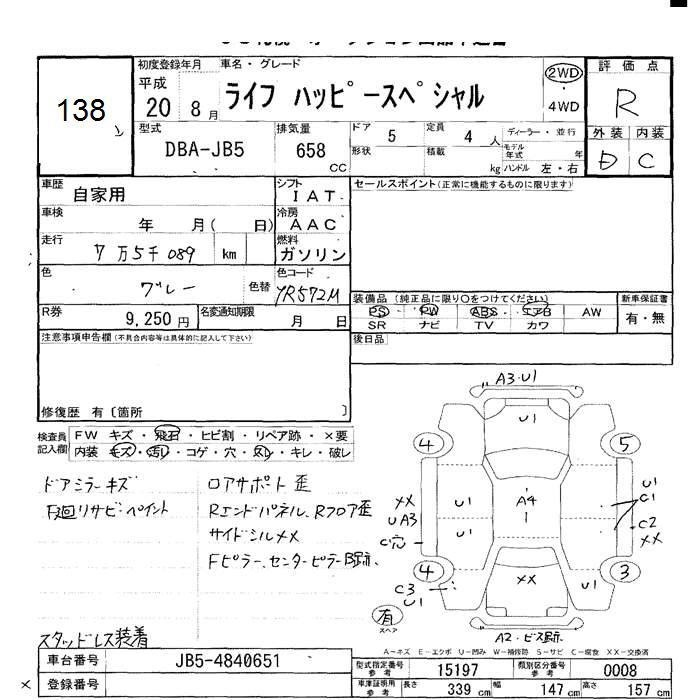 138
初度登録年月
平成
20 8 月
車名・グレード
ライフ ハッピースペシャル
2WD
・
4WD
評価点
R
型式
DBA-JB5
排気量
658
CC
ドア
5
形状
定員
4 人
積載
kg
ディーラー・並行
モデル
年式 年
ハンドル 左・右
外装 内装
D C
車歴
自家用
シフト
IAT
車検
年 月( 日)
冷房
AAC
走行
7万5千089 km
燃料
ガソリン
色
グレー
色替
色コード
YR572M
R券
9,250 円
名変通知期限
月 日
セールスポイント(正常に機能するものに限ります)
装備品(純正品に限り○をつけてください)
PS PW ABS エアB AW
SR ナビ TV カワ
新車保証書
有・無
後日品
注意事項申告欄(不具合内容等は具体的に記入して下さい)
修復歴 有〔箇所 〕
検査員
記入欄
FW キズ・飛石・ヒビ割・リペア跡・×要
内装 キズ・汚レ・コゲ・穴・スレ・キレ・破レ
ドアミラーキズ
下廻リサビ・ペイント
ロアサポート歪
Rエンドパネル、Rフロア歪
サイドシルメメ
Fピラー、センターピラー
スタッドレス装着
A3・U1
U1
4
5
XX
UA3
C穴
U1
U1
A4
1
U1
C1
C2
XX
4
3
C3
U1
XX
U1
有
スペア
A2・ビス跡
A-キズ E-エクボ U-凹み W-補修跡 S-サビ C-腐食 XX-交換済
車台番号
JB5-4840651
登録番号
型式指定番号
参考
15197
類別区分番号
参考
0008
車庫証明用
参考
長さ 339 cm
幅 147 cm
高さ 157 cm